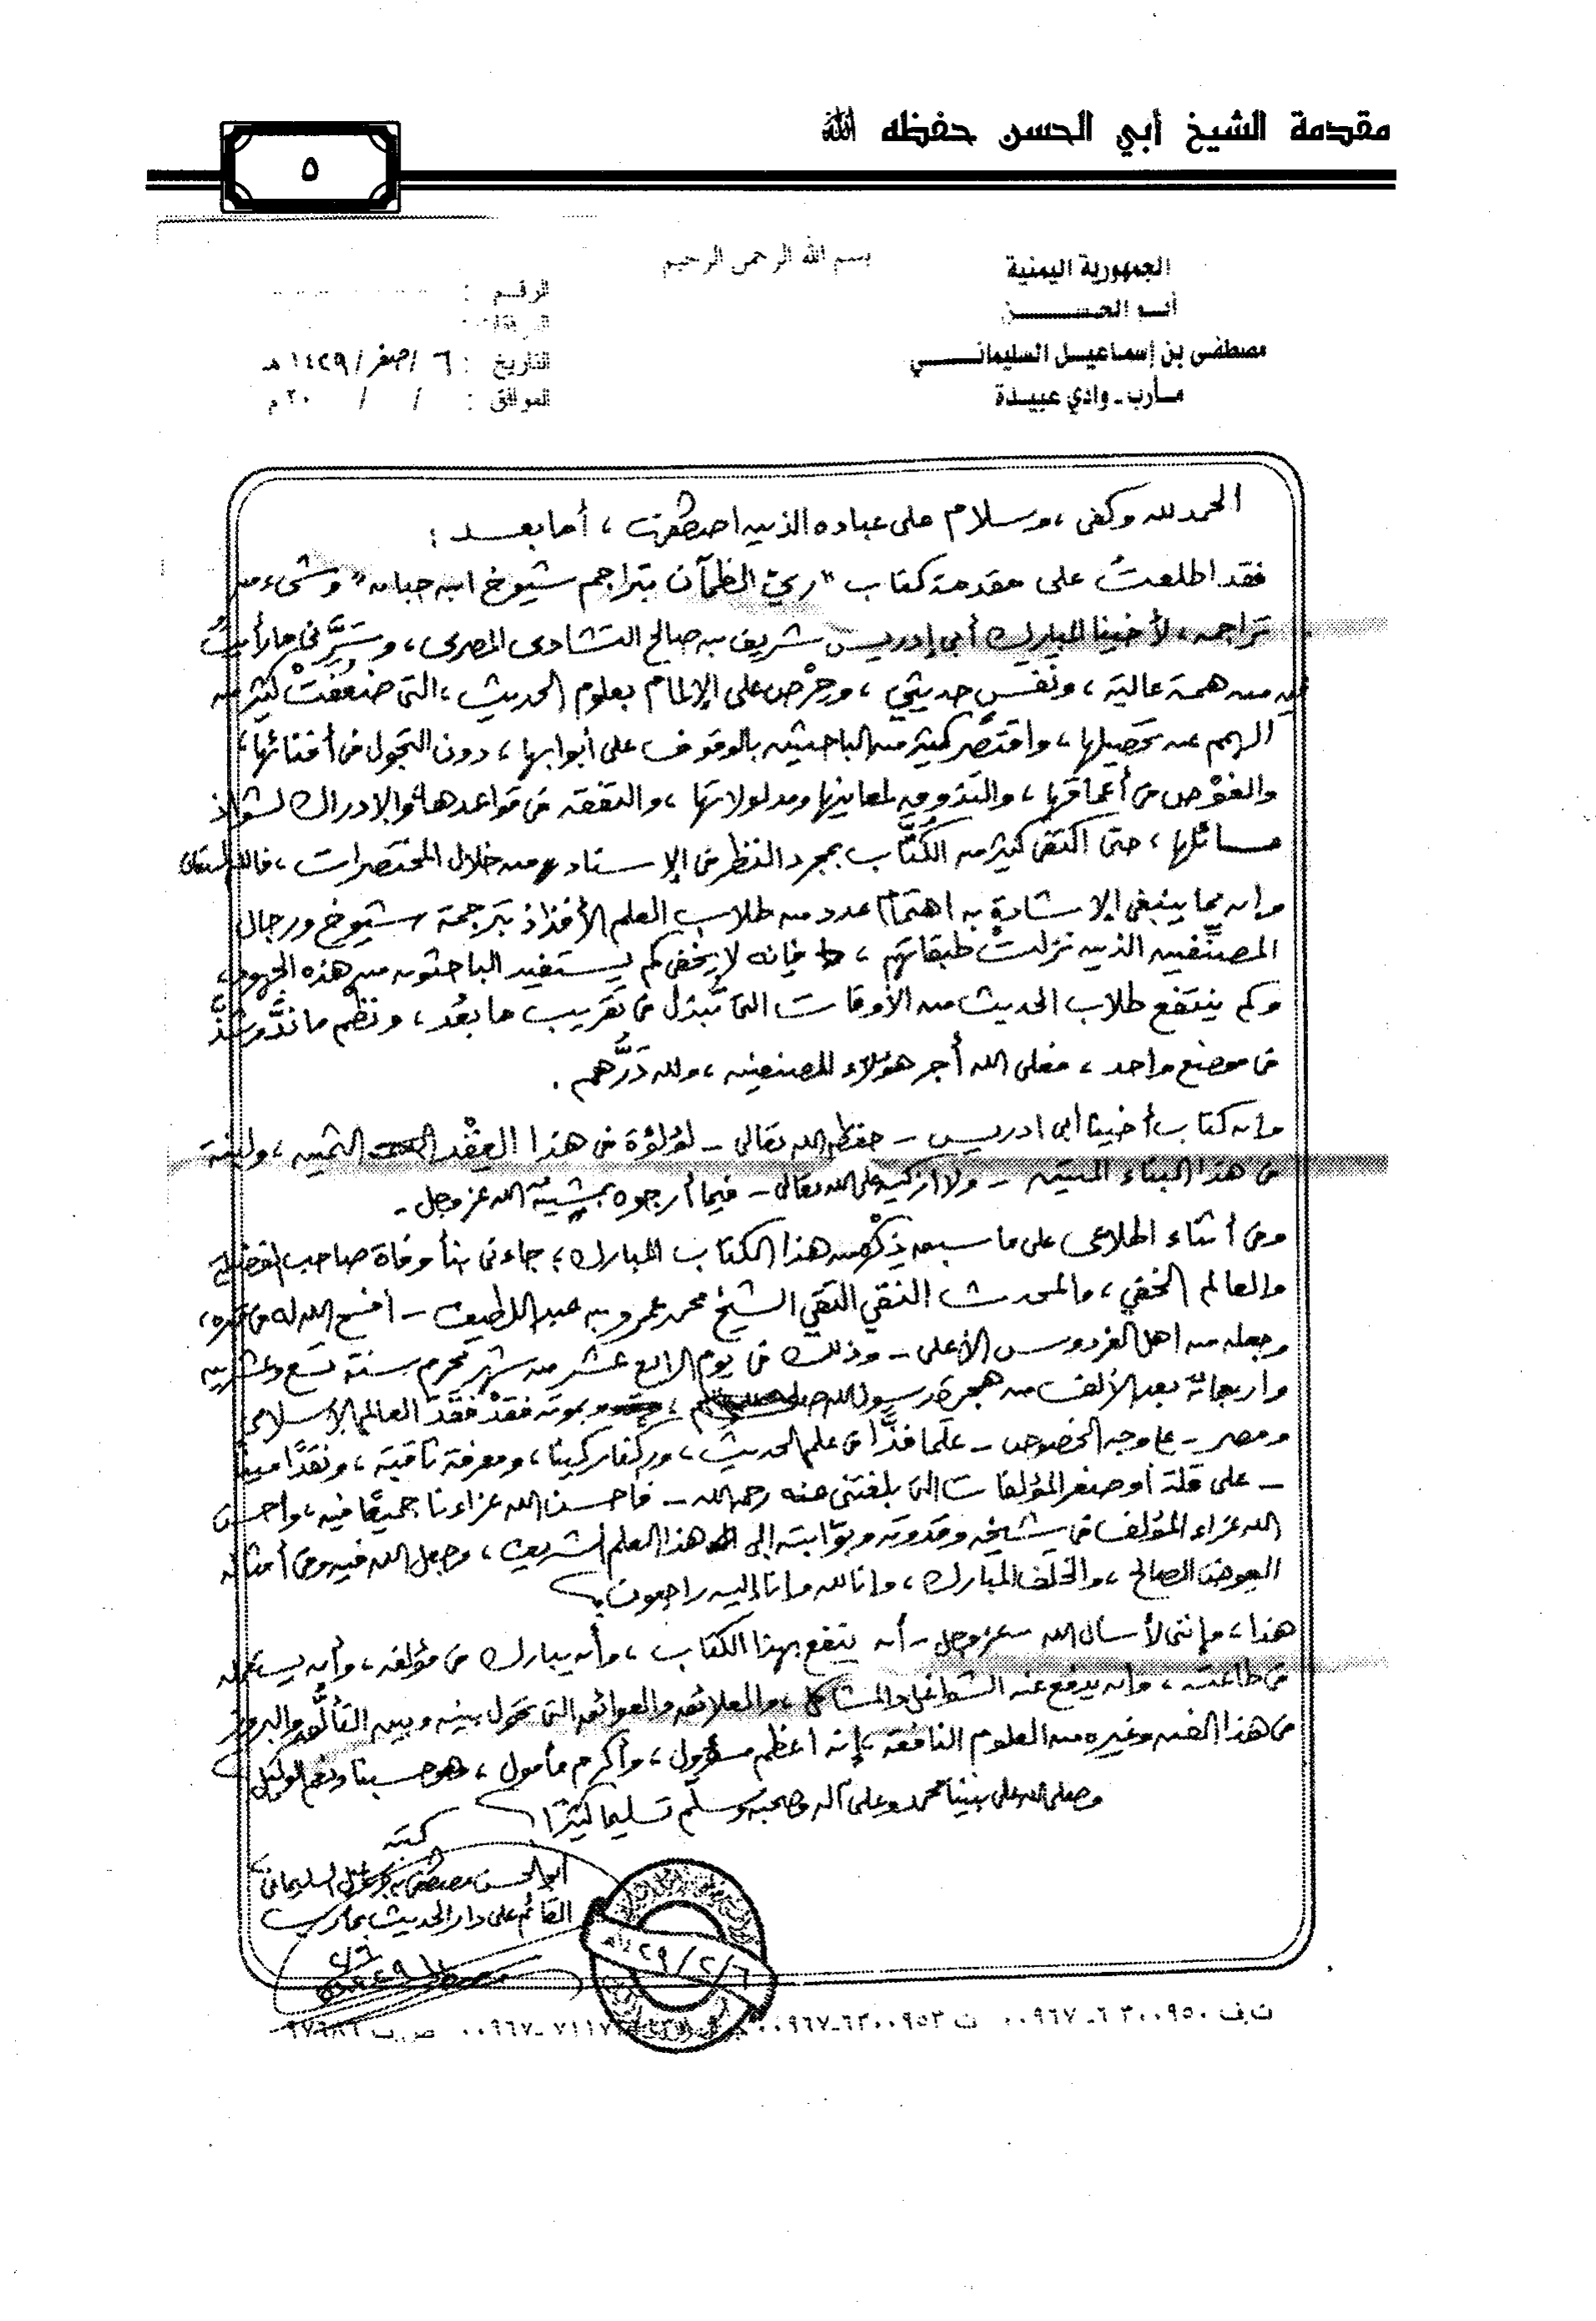 مقدمة الشيخ أبي الحسن حفظه الله
٥
بسم الله الرحمن الرحيم
الجمهورية اليمنية
أبو الحســـــن
مصطفى بن إسماعيل السليمانــــي
مأرب - وادي عبيدة
الرقم :
المرفقات :
التاريخ : ٦ / صفر / ١٤٢٩ هـ
الموافق : / / ٢٠ م
الحمد لله وكفى ، وسلام على عباده الذين اصطفى ، أما بعـــد :
فقد اطلعتُ على مقدمة كتاب " ريّ الظمآن بتراجم شيوخ ابن حبان " وشيء من
تراجمه ، لأخينا المبارك أبي إدريس شريف بن صالح التشادي المصري ، وسَرَّني ما رأيتُ
فيه من همة عالية ، ونَفَسٍ حديثي ، وحِرْصٍ على الإلمام بعلوم الحديث ، التي ضَعُفَتْ كثير من
الهمم عن تحصيلها ، واقتصر كثير من الباحثين بالوقوف على أبوابها ، دون التجول في أفنائها ،
والغوْص في أعماقها ، والتذوق لمعانيها ومدلولاتها ، والتفقه في قواعدها ، والإدراك لشواذ
مسائلها ، حتى اكتفى كثير من الكُتَّاب بمجرد النظر في الإسناد من خلال المختصرات ، فالله المستعان
وإن مما ينبغي الإشادة به اهتمام عدد من طلاب العلم الأفذاذ بترجمة شيوخ ورجال
المصنِّفين الذين نزلتْ طبقاتهم ، فإنه لا يخفى كم يستفيد الباحثون من هذه الجهود ،
وكم ينتفع طلاب الحديث من الأوقات التي تُبذل في تقريب ما بَعُد ، ونظْم ما ندَّ وشذَّ
في موضع واحد ، فعلى الله أجر هؤلاء المصنفين ، ولله دَرُّهم .
وإن كتاب أخينا أبي إدريس - حفظه الله تعالى - لؤلؤة في هذا العِقْد الثمين ، ولبنة
في هذا البناء المتين - ولا أزكيه على الله تعالى - فيما أرجوه بمشيئة الله عز وجل -
وفي أثناء اطلاعي على ما سبق ذِكْره من هذا الكتاب المبارك ؛ جاءني نبأ وفاة صاحب الفضيلة
والعالم الخفي ، والمحدث النقي التقي الشيخ محمد عمرو بن عبد اللطيف - أفسح الله له في قبره ،
وجعله من أهل الفردوس الأعلى - وذلك في يوم الرابع عشر من شهر محرم سنة تسع وعشرين
وأربعمائة بعد الألف من هجرة رسول الله ، وبموته فقدْ فَقَدَ العالم الإسلامي
ومصر - على وجه الخصوص - علَمًا فذًّا في علم الحديث ، وركنًا ركينًا ، ومعرفة ثاقبة ، ونقدًا متينًا
- على قلة أو صغر المؤلفات التي بلغتني عنه رحمه الله - فأحسن الله عزاءنا جميعًا فيه ، وأحسن
الله عزاء المؤلف في شيخه وقدوته وبوّابته إلى هذا العلم الشريف ، وجعل الله فيه وفي أمثاله
العوض الصالح ، والخلف المبارك ، وإنا لله وإنا إليه راجعون .
هذا ، وإنني لأسأل الله - عز وجل - أن ينفع بهذا الكتاب ، وأن يبارك في مؤلفه ، وأن يستعمله
في طاعته ، وأن يدفع عنه الشواغل والمشاكل ، والعلائق والعوائق التي تحول بينه وبين التألُّق والبروز
في هذا الفن وغيره من العلوم النافعة ، إنه أعظم مسؤول ، وأكرم مأمول ، وهو حسبنا ونعم الوكيل
وصلى الله على نبينا محمد وعلى آله وصحبه وسلَّم تسليما كثيرًا
كتبه
أبو الحسن مصطفى بن إسماعيل السليماني
القائم على دار الحديث بمأرب
١٤٢٩/٢/٦
ت ف ٦٣٠٠٩٥٠ - ٠٠٩٦٧ ت ٦٣٠٠٩٥٣ - ٠٠٩٦٧